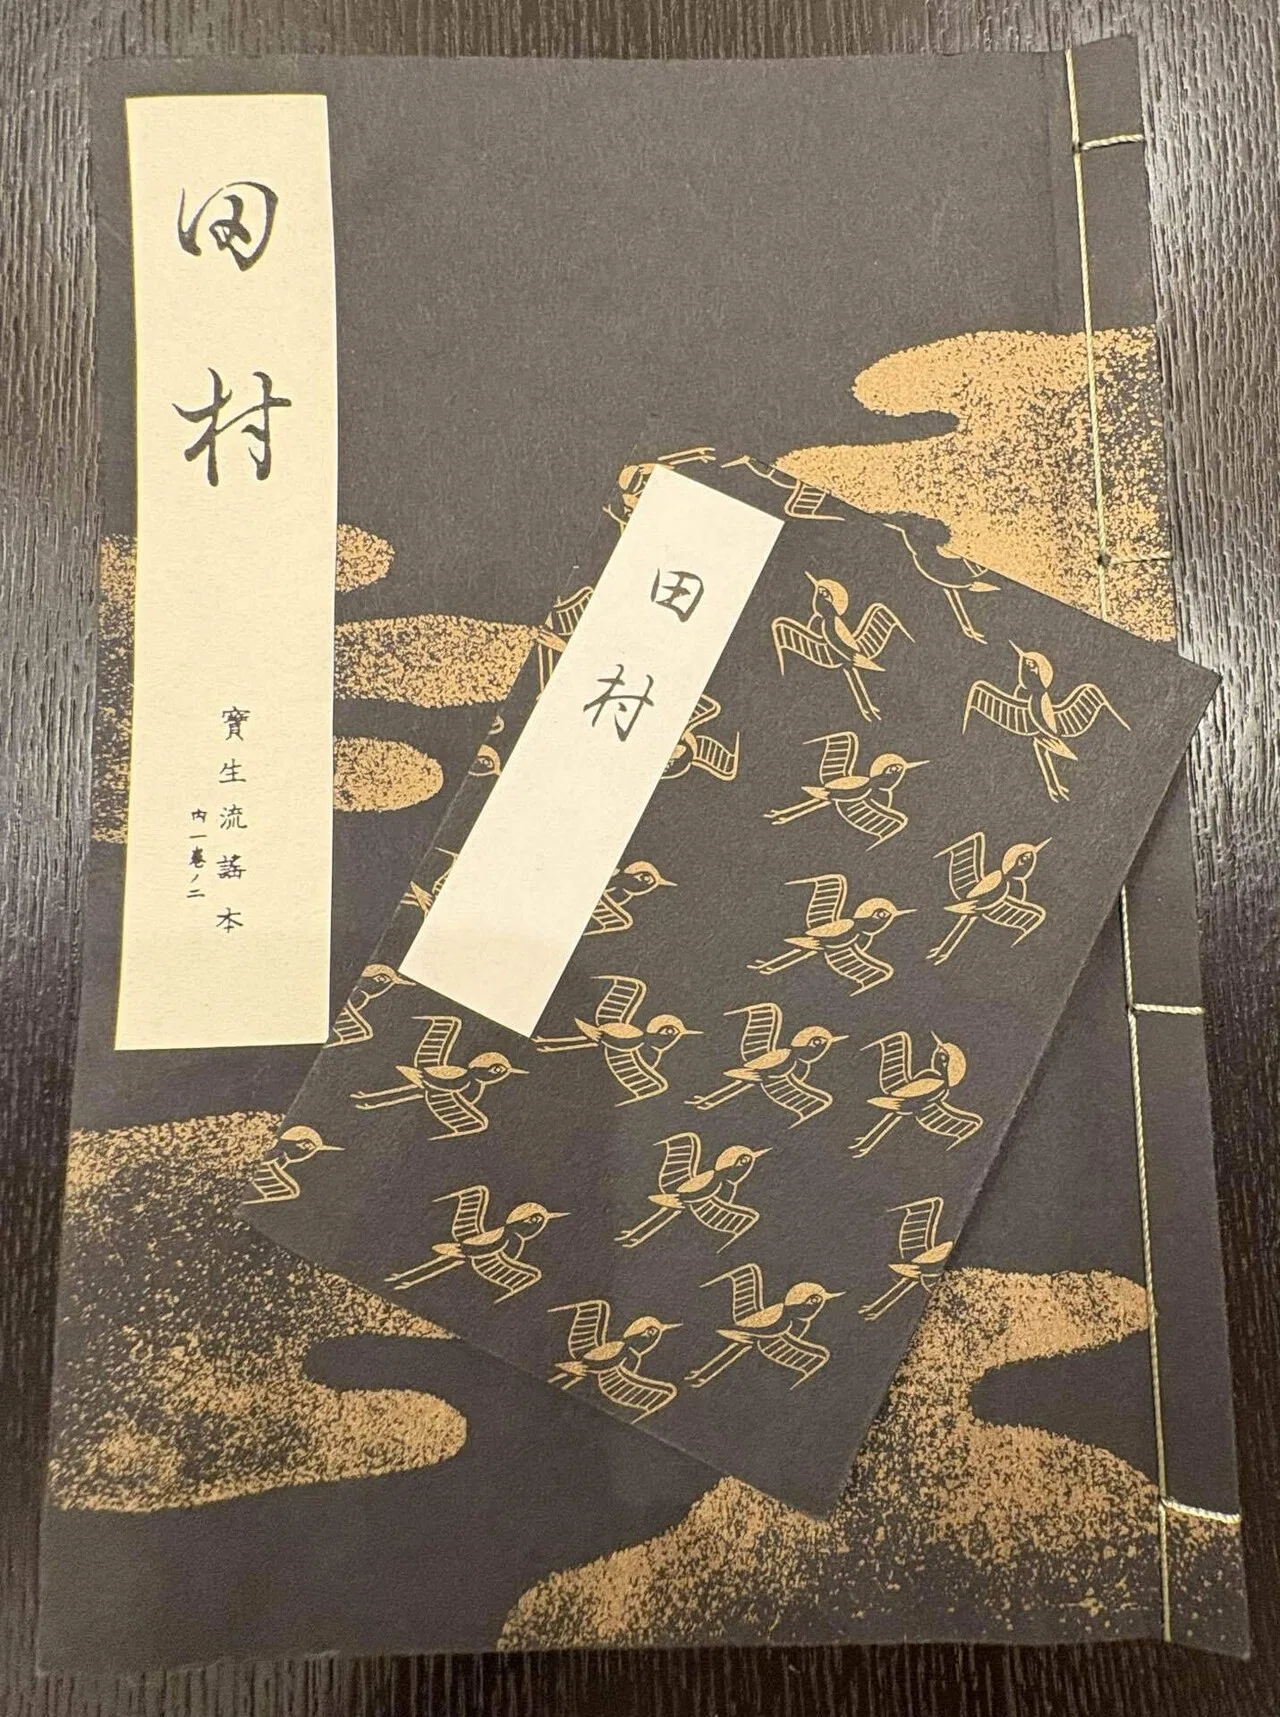 田村
寳生流謠本
内一巻ノ二
田村